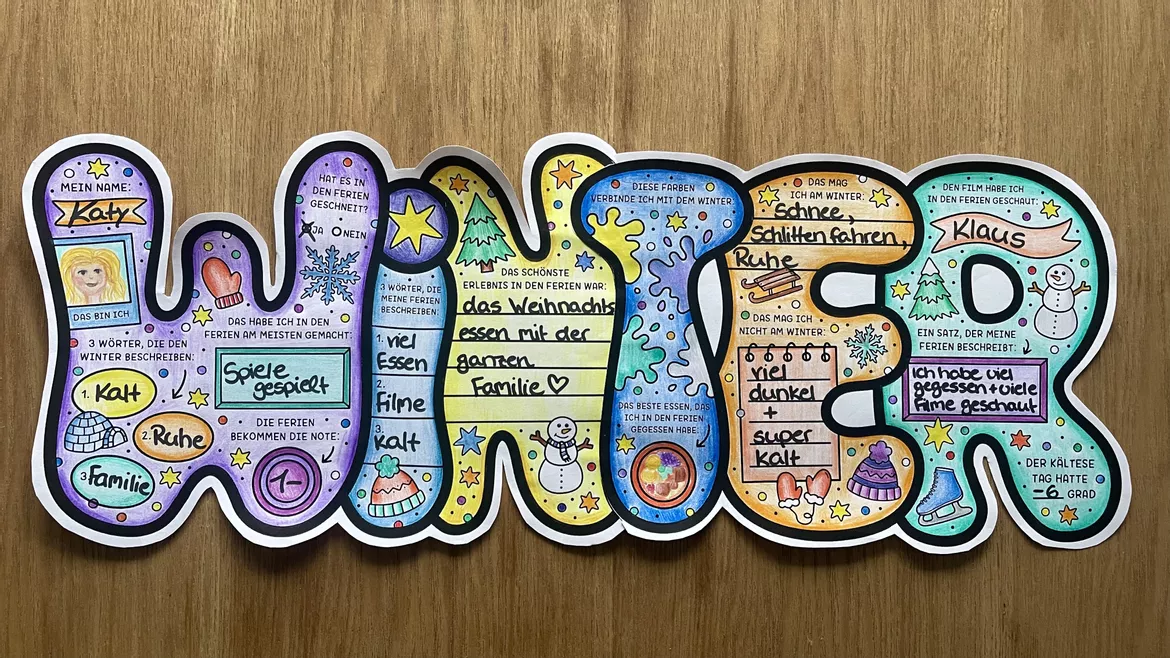 WINTER
MEIN NAME:
Katy
DAS BIN ICH
3 WÖRTER, DIE DEN
WINTER BESCHREIBEN:
1. Kalt
2. Ruhe
3. Familie
HAT ES IN
DEN FERIEN
GESCHNEIT?
JA NEIN
DAS HABE ICH IN DEN
FERIEN AM MEISTEN GEMACHT:
Spiele
gespielt
DIE FERIEN
BEKOMMEN DIE NOTE:
1-
3 WÖRTER, DIE
MEINE FERIEN
BESCHREIBEN:
1. viel
Essen
2.
Filme
3.
kalt
DAS SCHÖNSTE
ERLEBNIS IN DEN FERIEN WAR:
das Weihnachts
essen mit der
ganzen
Familie ♡
DIESE FARBEN
VERBINDE ICH MIT DEM WINTER:
DAS BESTE ESSEN, DAS
ICH IN DEN FERIEN
GEGESSEN HABE:
DAS MAG
ICH AM WINTER:
Schnee,
Schlitten fahren,
Ruhe
DAS MAG ICH
NICHT AM WINTER:
viel
dunkel
+
super
kalt
DEN FILM HABE ICH
IN DEN FERIEN GESCHAUT:
Klaus
EIN SATZ, DER MEINE
FERIEN BESCHREIBT:
Ich habe viel
gegessen + viele
Filme geschaut
DER KÄLTESE
TAG HATTE
-6 GRAD